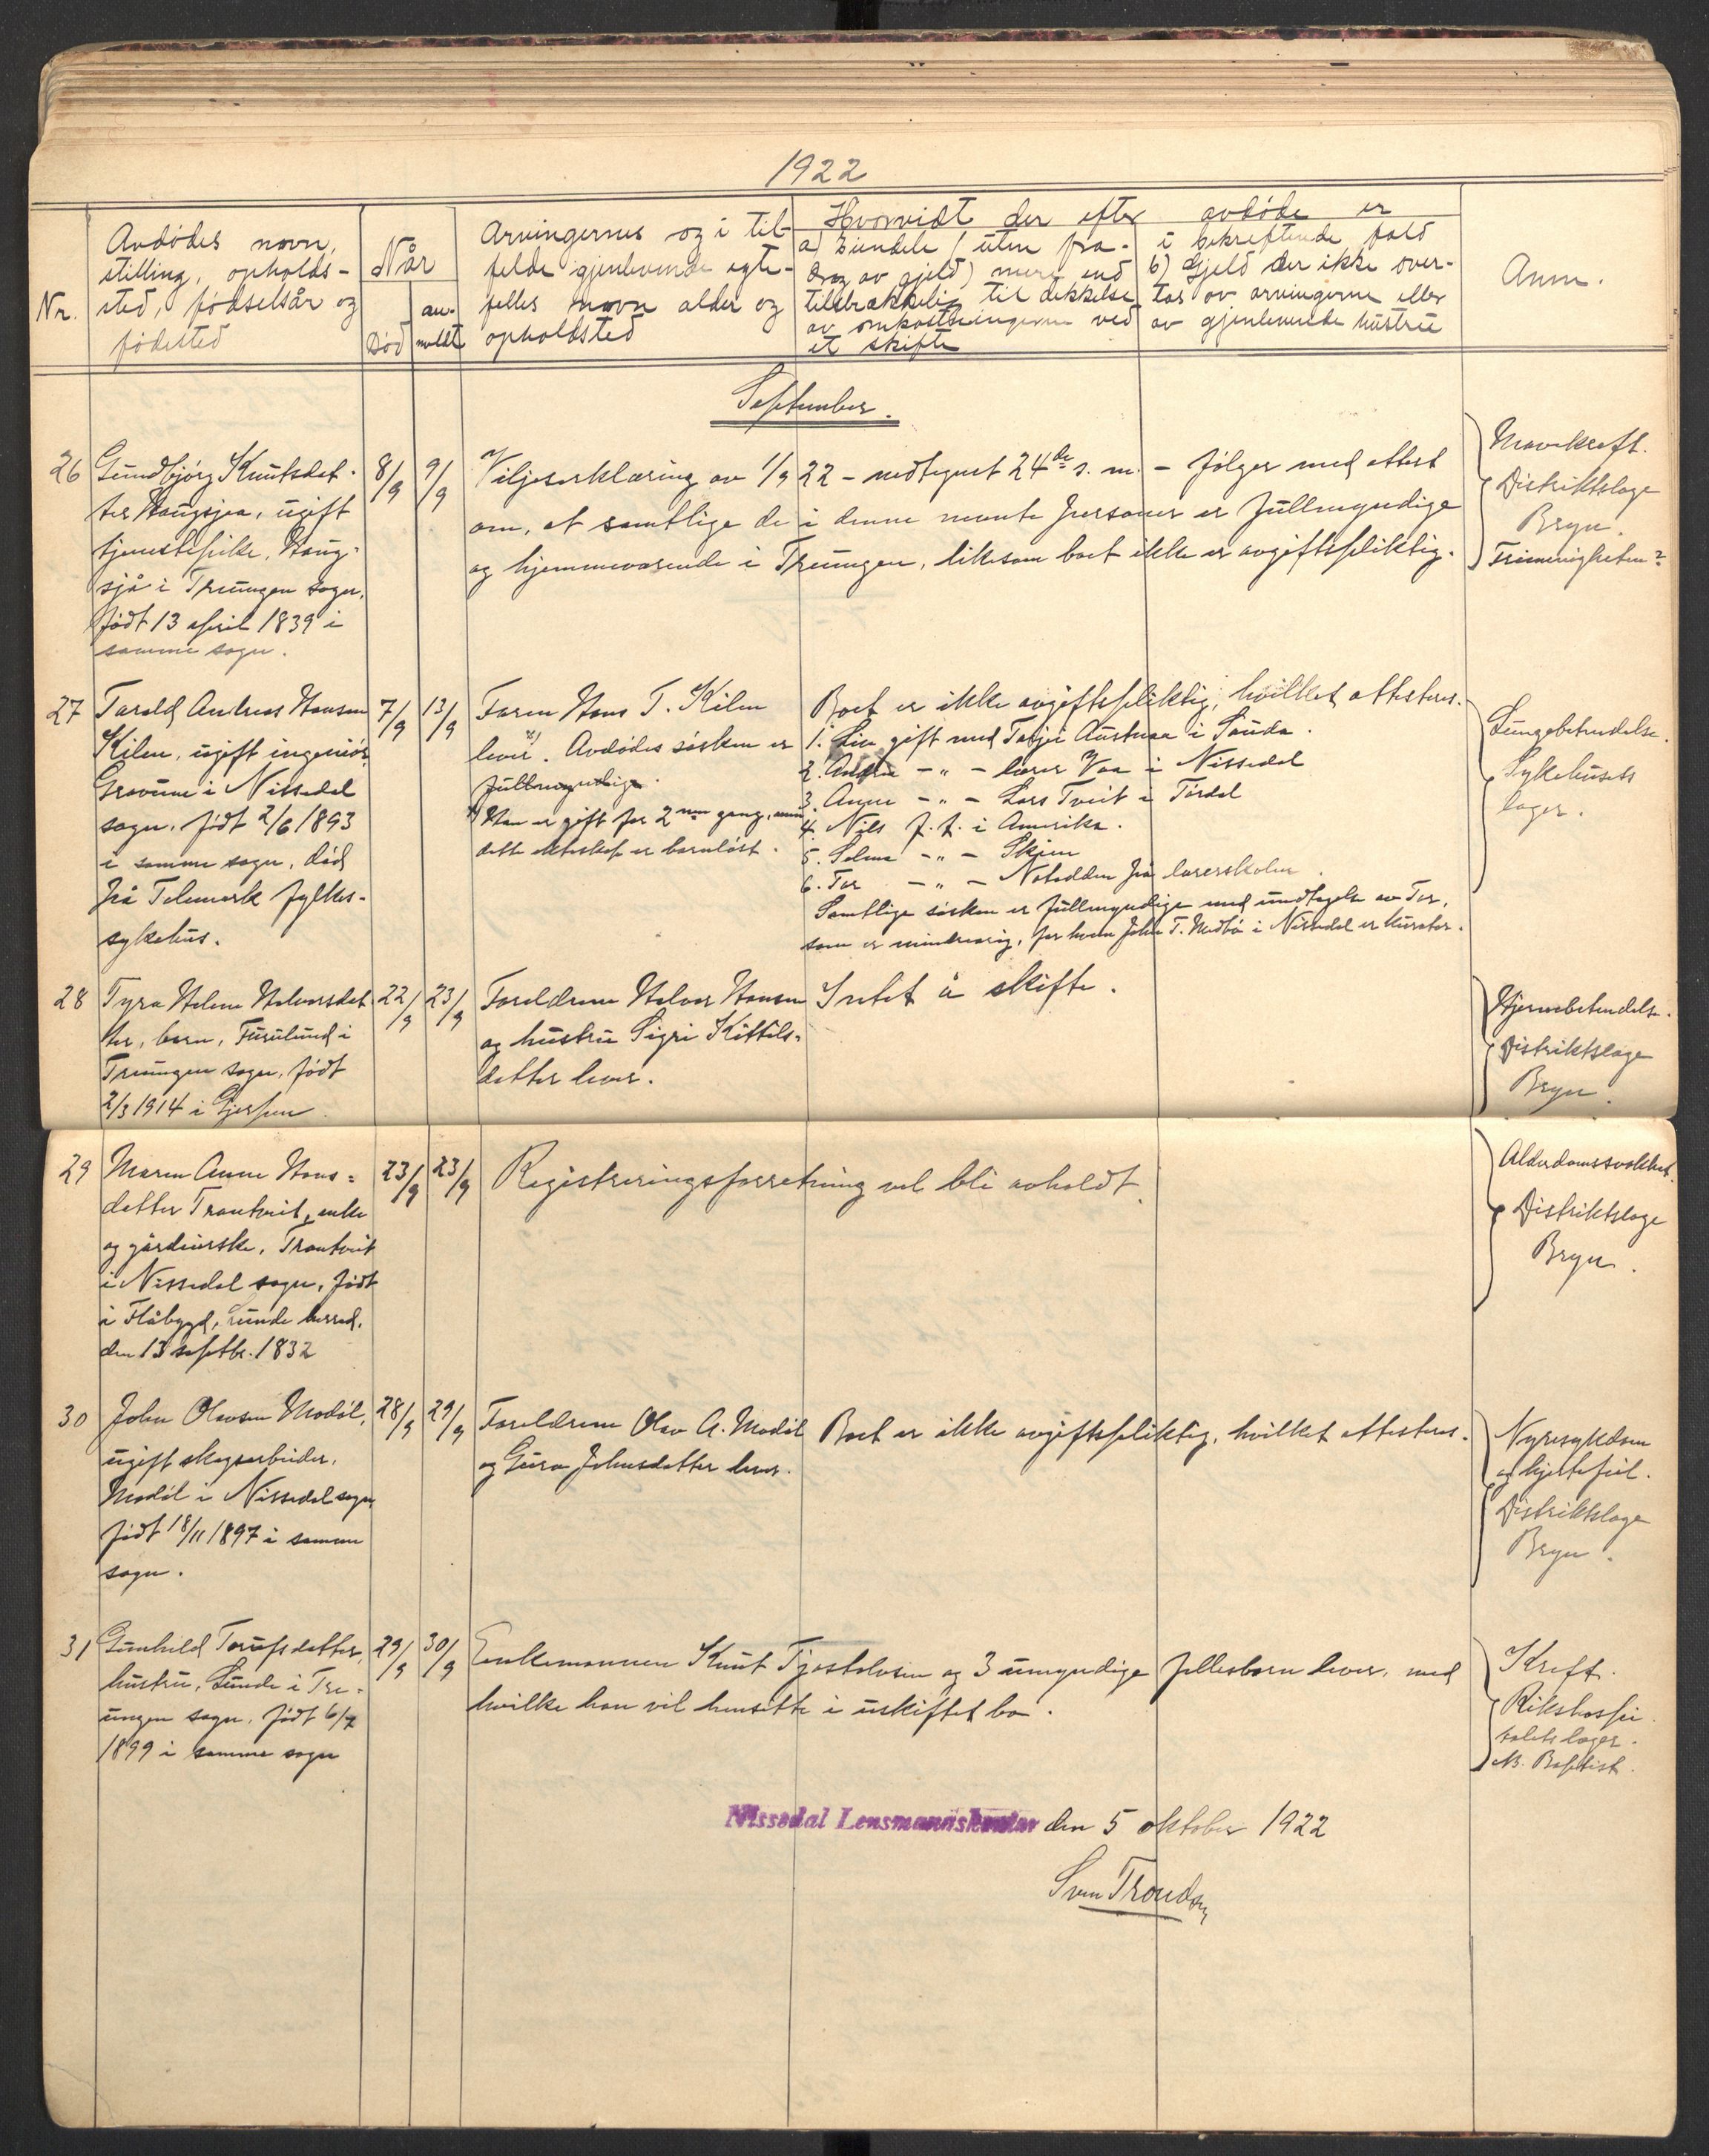 1922
Nr.
Avdødes navn,
stilling, opholds-
sted, fødselsår og
fødested
Når
Død
an-
meldt
Arvingernes og i til-
felde gjenlevende egte-
felles navn alder og
opholdsted
Hvorvidt der efter avdøde er
a) Eiendele (uten fra-
drag av gjeld) mere end
tilstrækkelig til dekkelse
av omkostningerne ved
et skifte
i bekreftende fald
b) Gjeld der ikke over-
tas av arvingerne eller
av gjenlevende hustru
Anm.
September.
26
Gundbjørg Knutsdat-
ter Haugsjaa, ugift
tjenestepike, Haug-
sjå i Treungen sogn,
født 13 april 1839 i
samme sogn.
8/9
9/9
Viljeserklæring av 1/9 22 – vedtegnet 24de s. m. – følger med attest
om, at samtlige de i denne nevnte personer er fullmyndige
og hjemmeværende i Treungen, likesom boet ikke er avgiftspliktig.
Mavekreft.
Distriktslæge
Bryn.
Frimenigheten?
27
Tarald Andreas Hansen
Kilen, ugift ingeniør,
i Nissedal
sogn, født 2/6 1893
i samme sogn, død
på Telemark fylkes-
sykehus.
7/9
13/9
Faren Hans T. Kilen
lever x). Avdødes søsken er
fullmyndige.
x) Han er gift for 2nen gang, men
dette ekteskap er barnløst.
Boet er ikke avgiftspliktig, hvilket attesteres.
1. Liv gift med Tarje Austnaa i Sauda.
2. Andrea –"– lærer Vaa i Nissedal
3. Anne –"– Lars Tveit i Tørdal
4. Nils f. t. i Amerika.
5. Selma –"– Skien
6. Tor –"– Notodden på lærerskolen.
Samtlige søsken er fullmyndige med undtagelse av Tor,
som er mindreårig, for hvem John T. Medbø i Nissedal er kurator.
Lungebetendelse.
Sykehusets
læger.
28
Tyra Helene Halvorsdat-
ter, barn, Furulund i
Treungen sogn, født
2/3 1914 i Gjerpen.
22/9
23/9
Foreldrene Halvor Hansen
og hustru Sigri Kittils-
datter lever.
Intet å skifte.
Hjernebetendelse.
Distriktslæge
Bryn.
29
Maren Anne Hans-
datter Trontveit, enke
og gårdeierske, Trontveit
i Nissedal sogn, født
i Flåbygd, Lunde herred,
den 13 septbr. 1832
23/9
23/9
Registreringsforretning vil bli avholdt.
Alderdomssvakhet.
Distriktslæge
Bryn.
30
John Olavsen Modøl,
ugift skogsarbeider,
Modøl i Nissedal sogn,
født 18/11 1897 i samme
sogn.
28/9
29/9
Foreldrene Olav A. Modøl
og Guro Johnsdatter lever.
Boet er ikke avgiftspliktig, hvilket attesteres.
Nyresykdom
og hjertefeil.
Distriktslæge
Bryn.
31
Gunhild Torufsdatter,
hustru, Lunde i Tre-
ungen sogn, født 6/7
1899 i samme sogn
29/9
30/9
Enkemannen Knut Tjostolvsen og 3 umyndige fellesbarn lever, med
hvilke han vil hensitte i uskiftet bo.
Kreft.
Rikshospi-
talets læger.
NB. Baptist.
Nissedal Lensmannskontor den 5 oktober 1922
Sven Trondsen